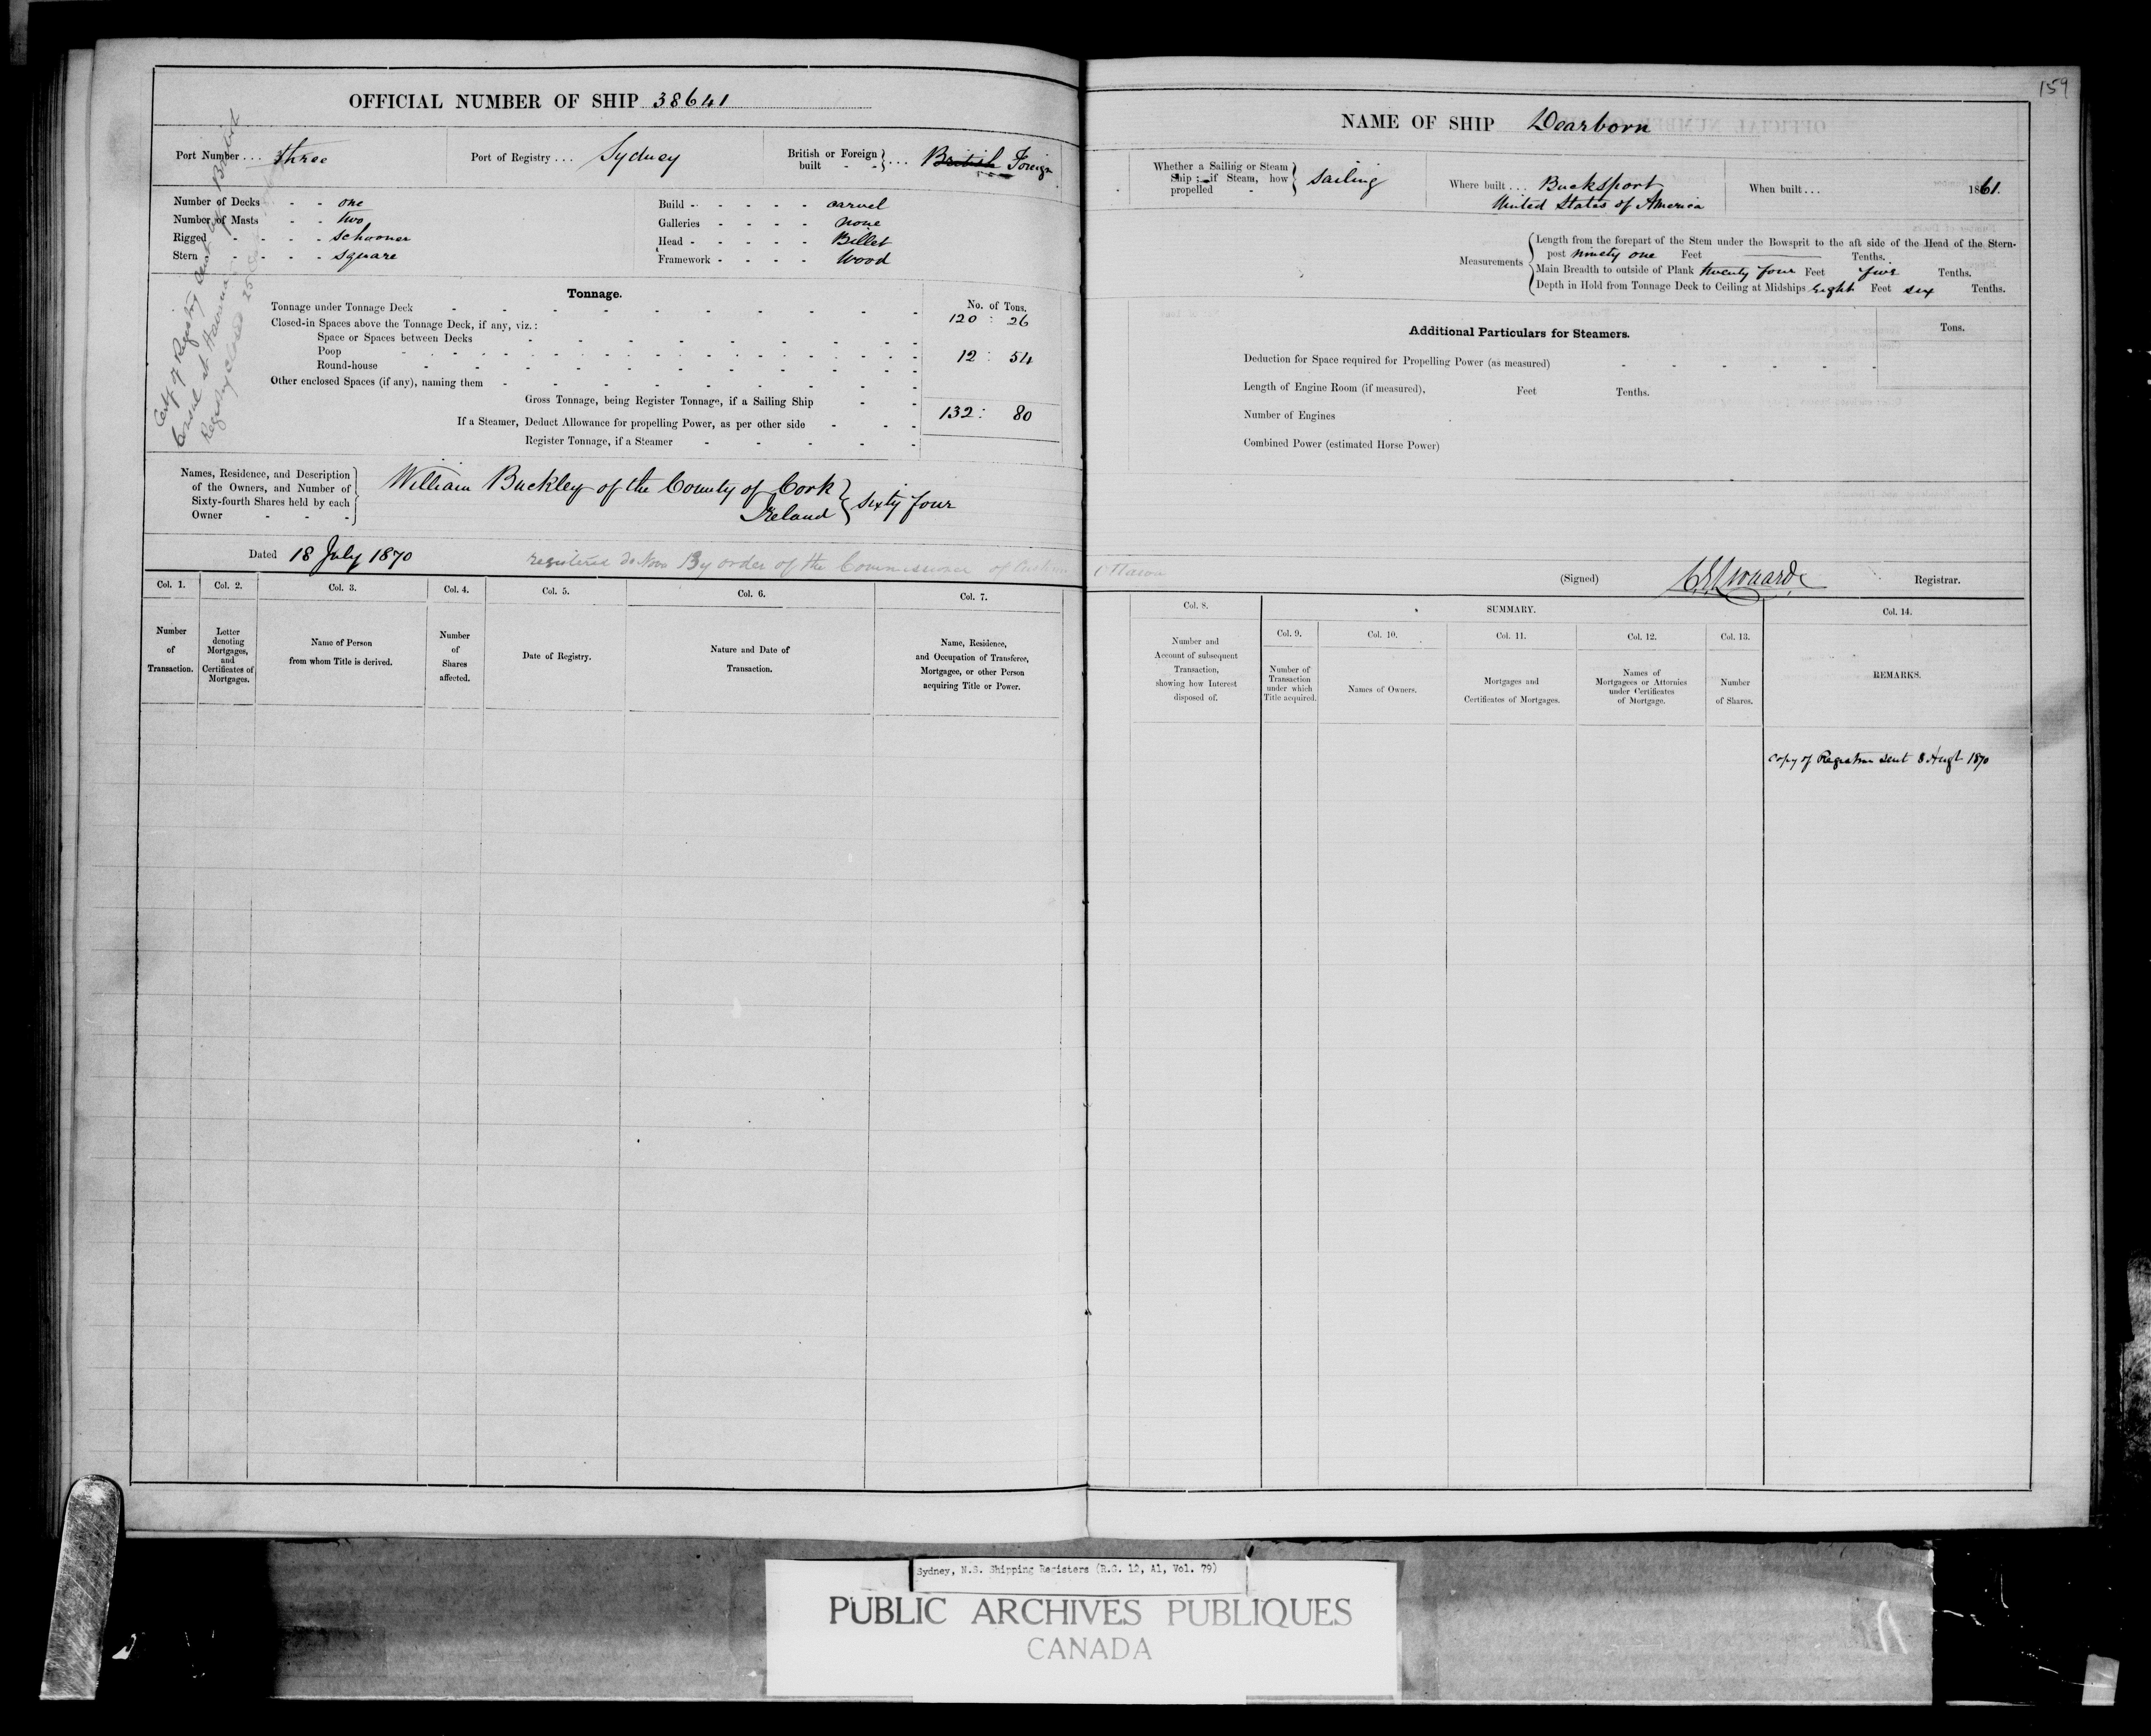 159
OFFICIAL NUMBER OF SHIP 38641
Port Number ... three
Port of Registry ... Sydney
British or Foreign built - - } ... British Foreign
Number of Decks - - one
Number of Masts - - two
Rigged - - - - schooner
Stern - - - - square
Build - - - - - carvel
Galleries - - - - none
Head - - - - - Billet
Framework - - - - Wood
Cert of Registry sent by British
Consul at Havana
Registry closed 25
Tonnage.
No. of Tons.
Tonnage under Tonnage Deck 120 : 26
Closed-in Spaces above the Tonnage Deck, if any, viz.:
Space or Spaces between Decks
Poop 12 : 54
Round-house
Other enclosed Spaces (if any), naming them
Gross Tonnage, being Register Tonnage, if a Sailing Ship 132 : 80
If a Steamer, Deduct Allowance for propelling Power, as per other side
Register Tonnage, if a Steamer
Names, Residence, and Description
of the Owners, and Number of
Sixty-fourth Shares held by each
Owner - - -
William Buckley of the County of Cork
Ireland } sixty four
Dated 18 July 1870
registered de Novo By order of the Commissioner of Customs Ottawa
Col. 1.
Number
of
Transaction.
Col. 2.
Letter
denoting
Mortgages,
and
Certificates of
Mortgages.
Col. 3.
Name of Person
from whom Title is derived.
Col. 4.
Number
of
Shares
affected.
Col. 5.
Date of Registry.
Col. 6.
Nature and Date of
Transaction.
Col. 7.
Name, Residence,
and Occupation of Transferee,
Mortgagee, or other Person
acquiring Title or Power.
NAME OF SHIP Dearborn
Whether a Sailing or Steam
Ship ; if Steam, how
propelled - } sailing
Where built ... Bucksport
United States of America
When built ... 1861.
Measurements
Length from the forepart of the Stem under the Bowsprit to the aft side of the Head of the Stern-
post ninety one Feet Tenths.
Main Breadth to outside of Plank twenty four Feet five Tenths.
Depth in Hold from Tonnage Deck to Ceiling at Midships eight Feet six Tenths.
Additional Particulars for Steamers.
Tons.
Deduction for Space required for Propelling Power (as measured)
Length of Engine Room (if measured), Feet Tenths.
Number of Engines
Combined Power (estimated Horse Power)
(Signed) Registrar.
Col. 8.
Number and
Account of subsequent
Transaction,
showing how Interest
disposed of.
SUMMARY.
Col. 9.
Number of
Transaction
under which
Title acquired.
Col. 10.
Names of Owners.
Col. 11.
Mortgages and
Certificates of Mortgages.
Col. 12.
Names of
Mortgagees or Attornies
under Certificates
of Mortgage.
Col. 13.
Number
of Shares.
Col. 14.
REMARKS.
Copy of Registration sent 8 Augt 1870
Sydney, N.S. Shipping Registers (R.G. 12, A1, Vol. 79)
PUBLIC ARCHIVES PUBLIQUES
CANADA